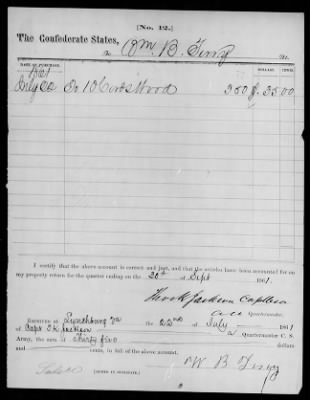 [No. 12.]
The Confederate States,
To Wm. B. Terry Dr.
DATE OF PURCHASE. DOLLARS. CENTS.
1861
July 22 To 10 Cords Wood 350 35 00
I certify that the above account is correct and just, and that the articles have been accounted for on
my property return for the quarter ending on the 30th of Sept 1861.
Capt
Quartermaster.
RECEIVED at Lynchburg Va the 22nd of July 1861
of Capt Jackson a Quartermaster C. S.
Army, the sum of thirty five dollars
and cents, in full of the above account.
W B Terry
(SIGNED IN DUPLICATE.)